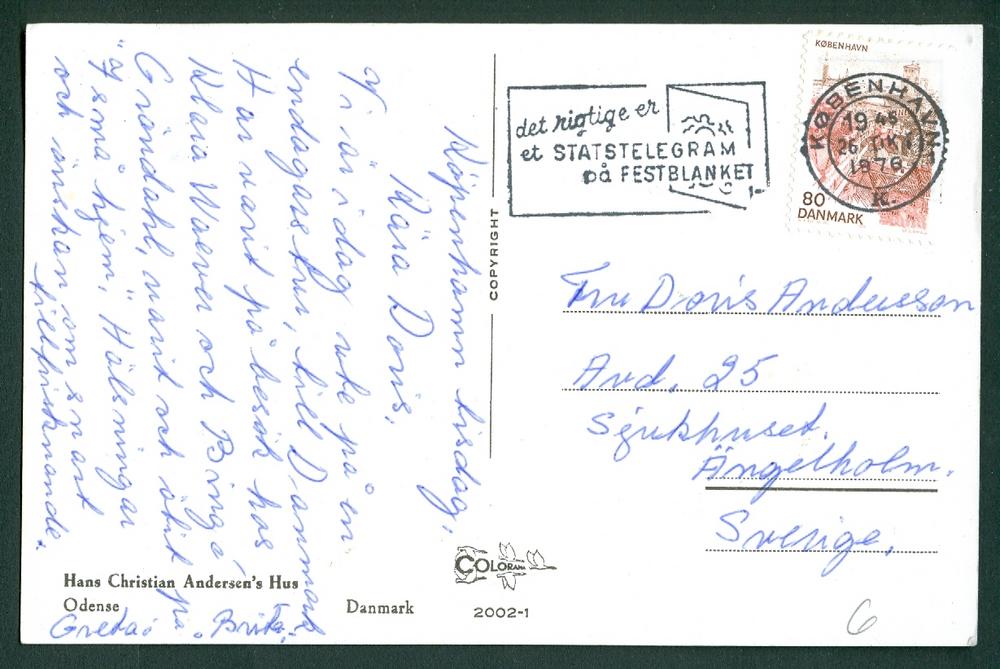 Köpenhamn tisdag.
Kära Doris,
Vi är i dag ute på en
endagarstur, till Danmark
Har varit på besök hos
Klara Waever och Binga
Gröndahl, varit och ätit på
"7 små hjem." Hälsningar
och önskan om snart
tillfrisknande.
Greta
Brita
Hans Christian Andersen's Hus
Odense
Danmark
COPYRIGHT
COLORAMA
2002-1
det rigtige er
et STATSTELEGRAM
på FESTBLANKET
KØBENHAVN
80
DANMARK
KØBENHAVN
19 45
26. OKT
1976
K.
Fru Doris Andersson
Avd. 25
Sjukhuset.
Ängelholm.
Sverige.
6